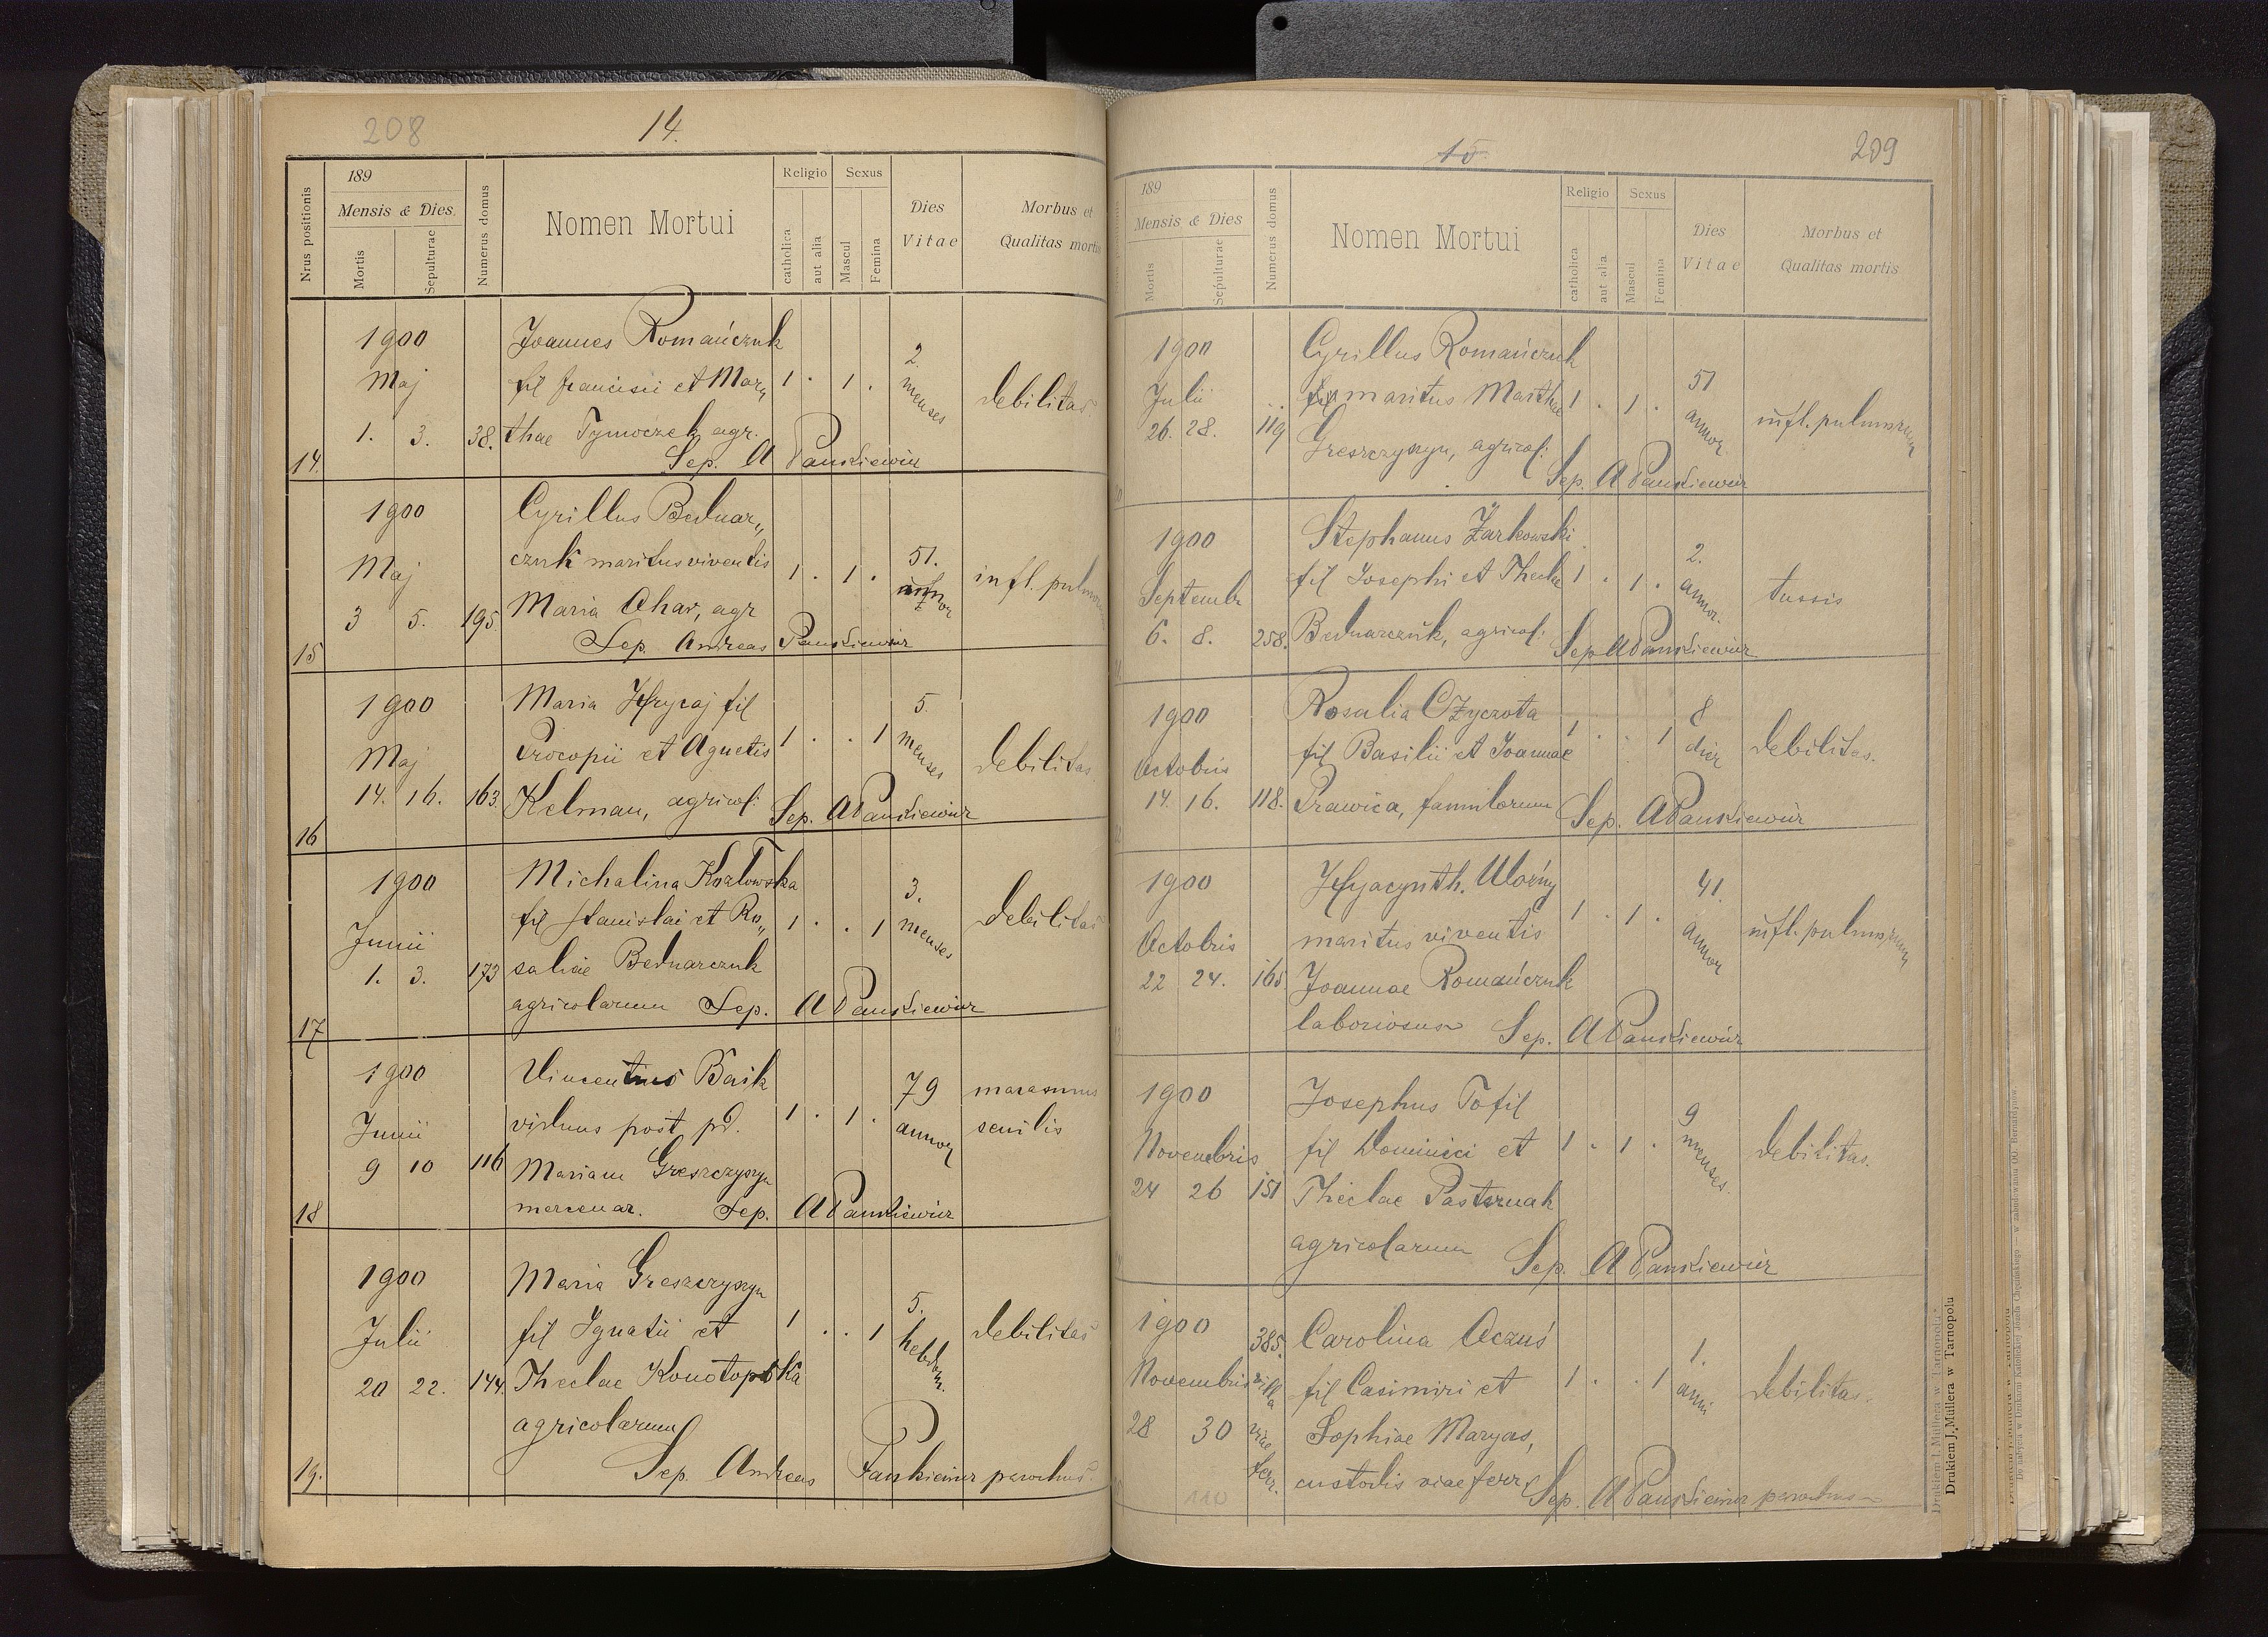 208
14.
189
Mensis & Dies.
Nrus positionis
Mortis
Sepulturae
Numerus domus
Nomen Mortui
Religio
catholica
aut alia
Sexus
Mascul
Femina
Dies
Vitae
Morbus et
Qualitas mortis
1900
Maj
1. 3. 38.
Joannes Romańczuk
fil Francisci et Mar„
thae Tymoczek agr.
1 . 1 .
2.
menses
debilitas
Sep. A Pankiewicz
14.
1900
Maj
3 5. 195.
Cyrillus Bednar„
czuk maritus viventis
Maria Ohar, agr
1 . 1 .
51.
annor
infl. pulmonum
Sep. Andreas Pankiewicz
15
1900
Maj
14. 16. 163.
Maria Hrycaj fil
Procopii et Agnetis
Kelman, agricol:
1 . . 1
5.
menses
debilitas.
Sep. A Pankiewicz
16
1900
Junii
1. 3. 173
Michalina Kozłowska
fil Stanislai et Ro„
saliae Bednarczuk
agricolarum Sep. A Pankiewicz
1 . . 1
3.
menses
debilitas
17
1900
Junii
9 10 116
Vincentius Baik
viduus post pd.
Mariam Greszczyszyn
mercenar. Sep. A Pankiewicz
1 . 1 .
79
annor
marasmus
senilis
18
1900
Julii
20 22. 144.
Maria Greszczyszyn
fil Ignatii et
Theclae Konotopska
agricolarum
1 . . 1
5.
hebdom.
debilitas
Sep. Andreas Pankiewicz parochus
19.
15
209
189
Mensis & Dies
Mortis
Sepulturae
Numerus domus
Nomen Mortui
Religio
catholica
aut alia
Sexus
Mascul
Femina
Dies
Vitae
Morbus et
Qualitas mortis
1900
Julii
26. 28. 119
Cyrillus Romańczuk
fil maritus Marthae
Greszczyszyn, agricol:
1 . 1 .
51
annor
infl. pulmonum
Sep. A Pankiewicz
1900
Septembr
6. 8. 258.
Stephanus Żarkowski
fil Josephi et Theclae
Bednarczuk, agricol:
1 . 1 .
2.
annor.
tussis
Sep A Pankiewicz
1900
Octobris
14. 16. 118.
Rosalia Czyczota
fil Basilii et Joannae
Prawica, famulorum
1 . . 1
8
dier
debilitas.
Sep. A Pankiewicz
1900
Octobris
22 24. 165
Hyacynth. Woźny
maritus viventis
Joannae Romańczuk
laboriosus Sep. A Pankiewicz
1 . 1 .
41.
annor
infl. pulmonum
1900
Novembris
24 26 151
Josephus Tofil
fil Dominici et
Theclae Pasternak
agricolarum Sep. A Pankiewicz
1 . 1 .
9
menses.
debilitas.
1900
Novembris
28 30
385.
villa
viae
ferr.
Carolina Oczuś
fil Casimiri et
Sophiae Maryas,
custodis viae ferr. Sep. A Pankiewicz parochus
1 . . 1
1.
anni
debilitas.
110
Drukiem J. Müllera w Tarnopolu